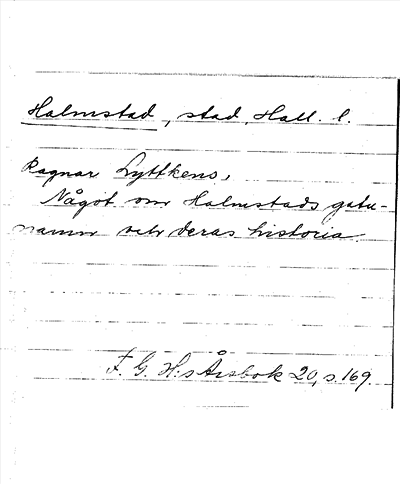 Halmstad, stad, Hall. l.
Ragnar Lyttkens,
Något om Halmstads gatu-
namn och deras historia.
F. G. H:s Årsbok 20, s. 169.